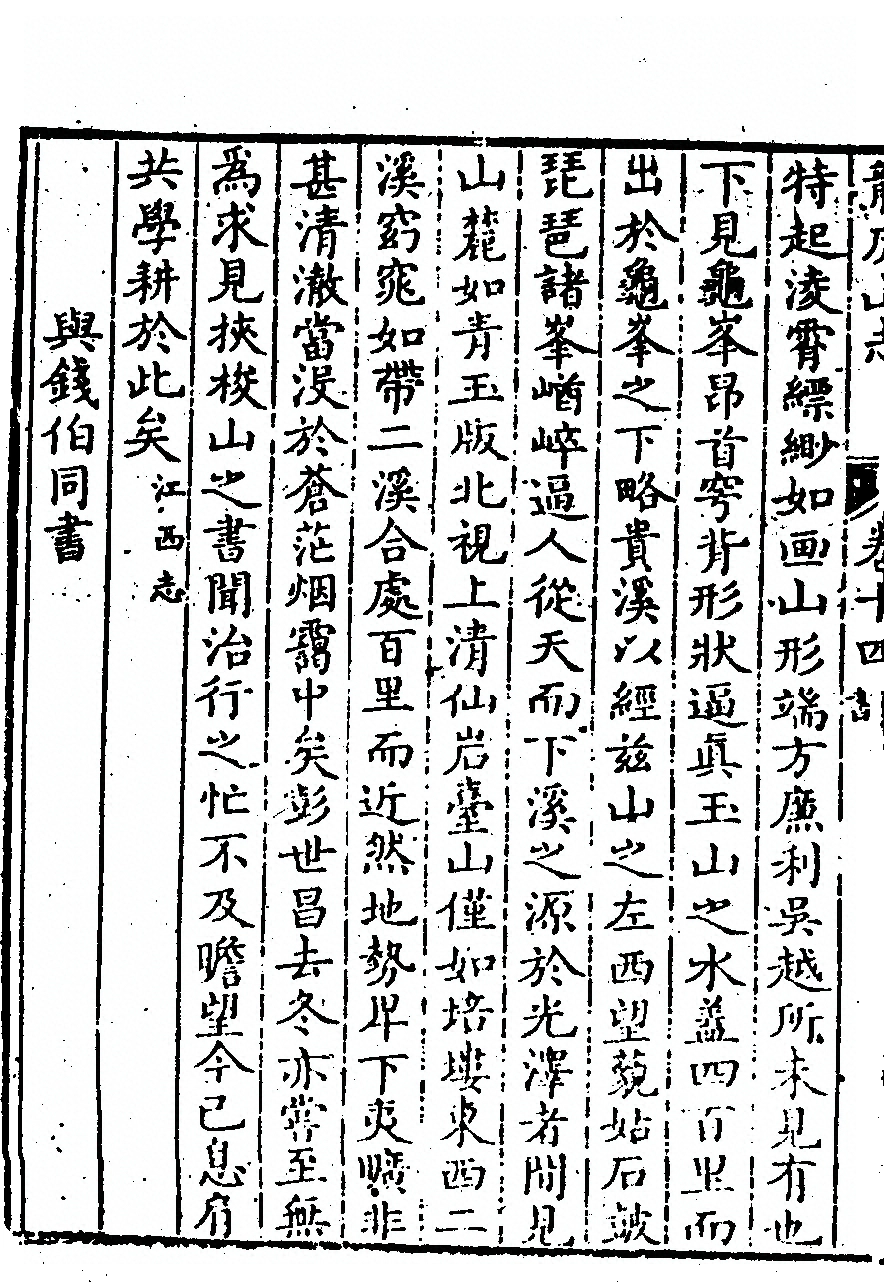 龍虎山志 卷十四 書
特起淩霄縹緲如画山形端方廉利吳越所未見有也
下見龜峯昂首穹背形狀逼眞玉山之水葢四百里而
出於龜峯之下略貴溪以經兹山之左西望藐姑石皷
琵琶諸峯崷崪逼人從天而下溪之源於光澤者間見
山麓如青玉版北視上清仙岩臺山僅如培塿東西二
溪窈窕如帶二溪合處百里而近然地勢卑下夷曠非
甚清澈當沒於蒼茫烟靄中矣彭世昌去冬亦嘗至無
為求見挾梭山之書聞治行之忙不及瞻望今已息肩
共學耕於此矣 江西志
與錢伯同書